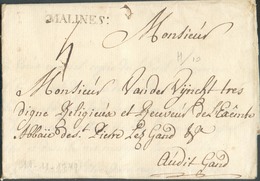 MALINES.
Monsieur
4
H/10
Monsieur Vander Vynckt tres
digne Religieux et Receveur de la Ste
Abbaïe de St. Pierre Lez Gand &a
Audit Gand